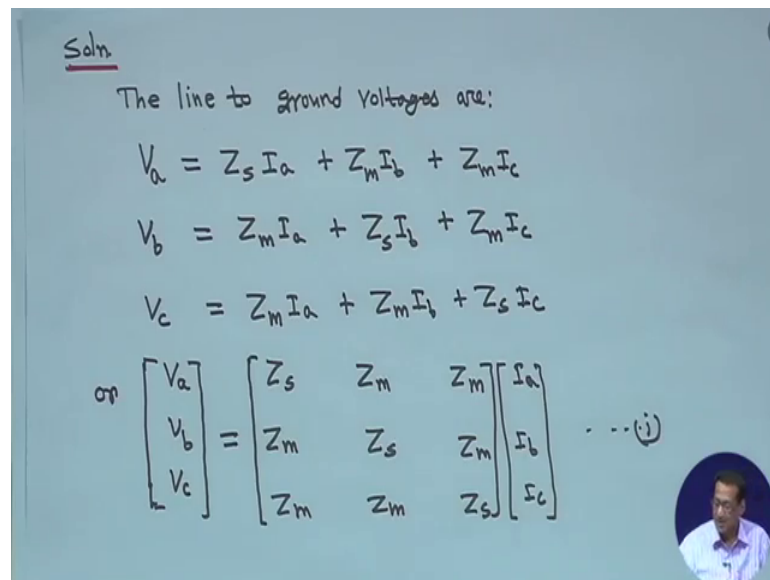 Soln.
The line to ground voltages are:
V_a = Z_s I_a + Z_m I_b + Z_m I_c
V_b = Z_m I_a + Z_s I_b + Z_m I_c
V_c = Z_m I_a + Z_m I_b + Z_s I_c
or [V_a] = [Z_s Z_m Z_m] [I_a]
[V_b] = [Z_m Z_s Z_m] [I_b] ....(i)
[V_c] = [Z_m Z_m Z_s] [I_c]